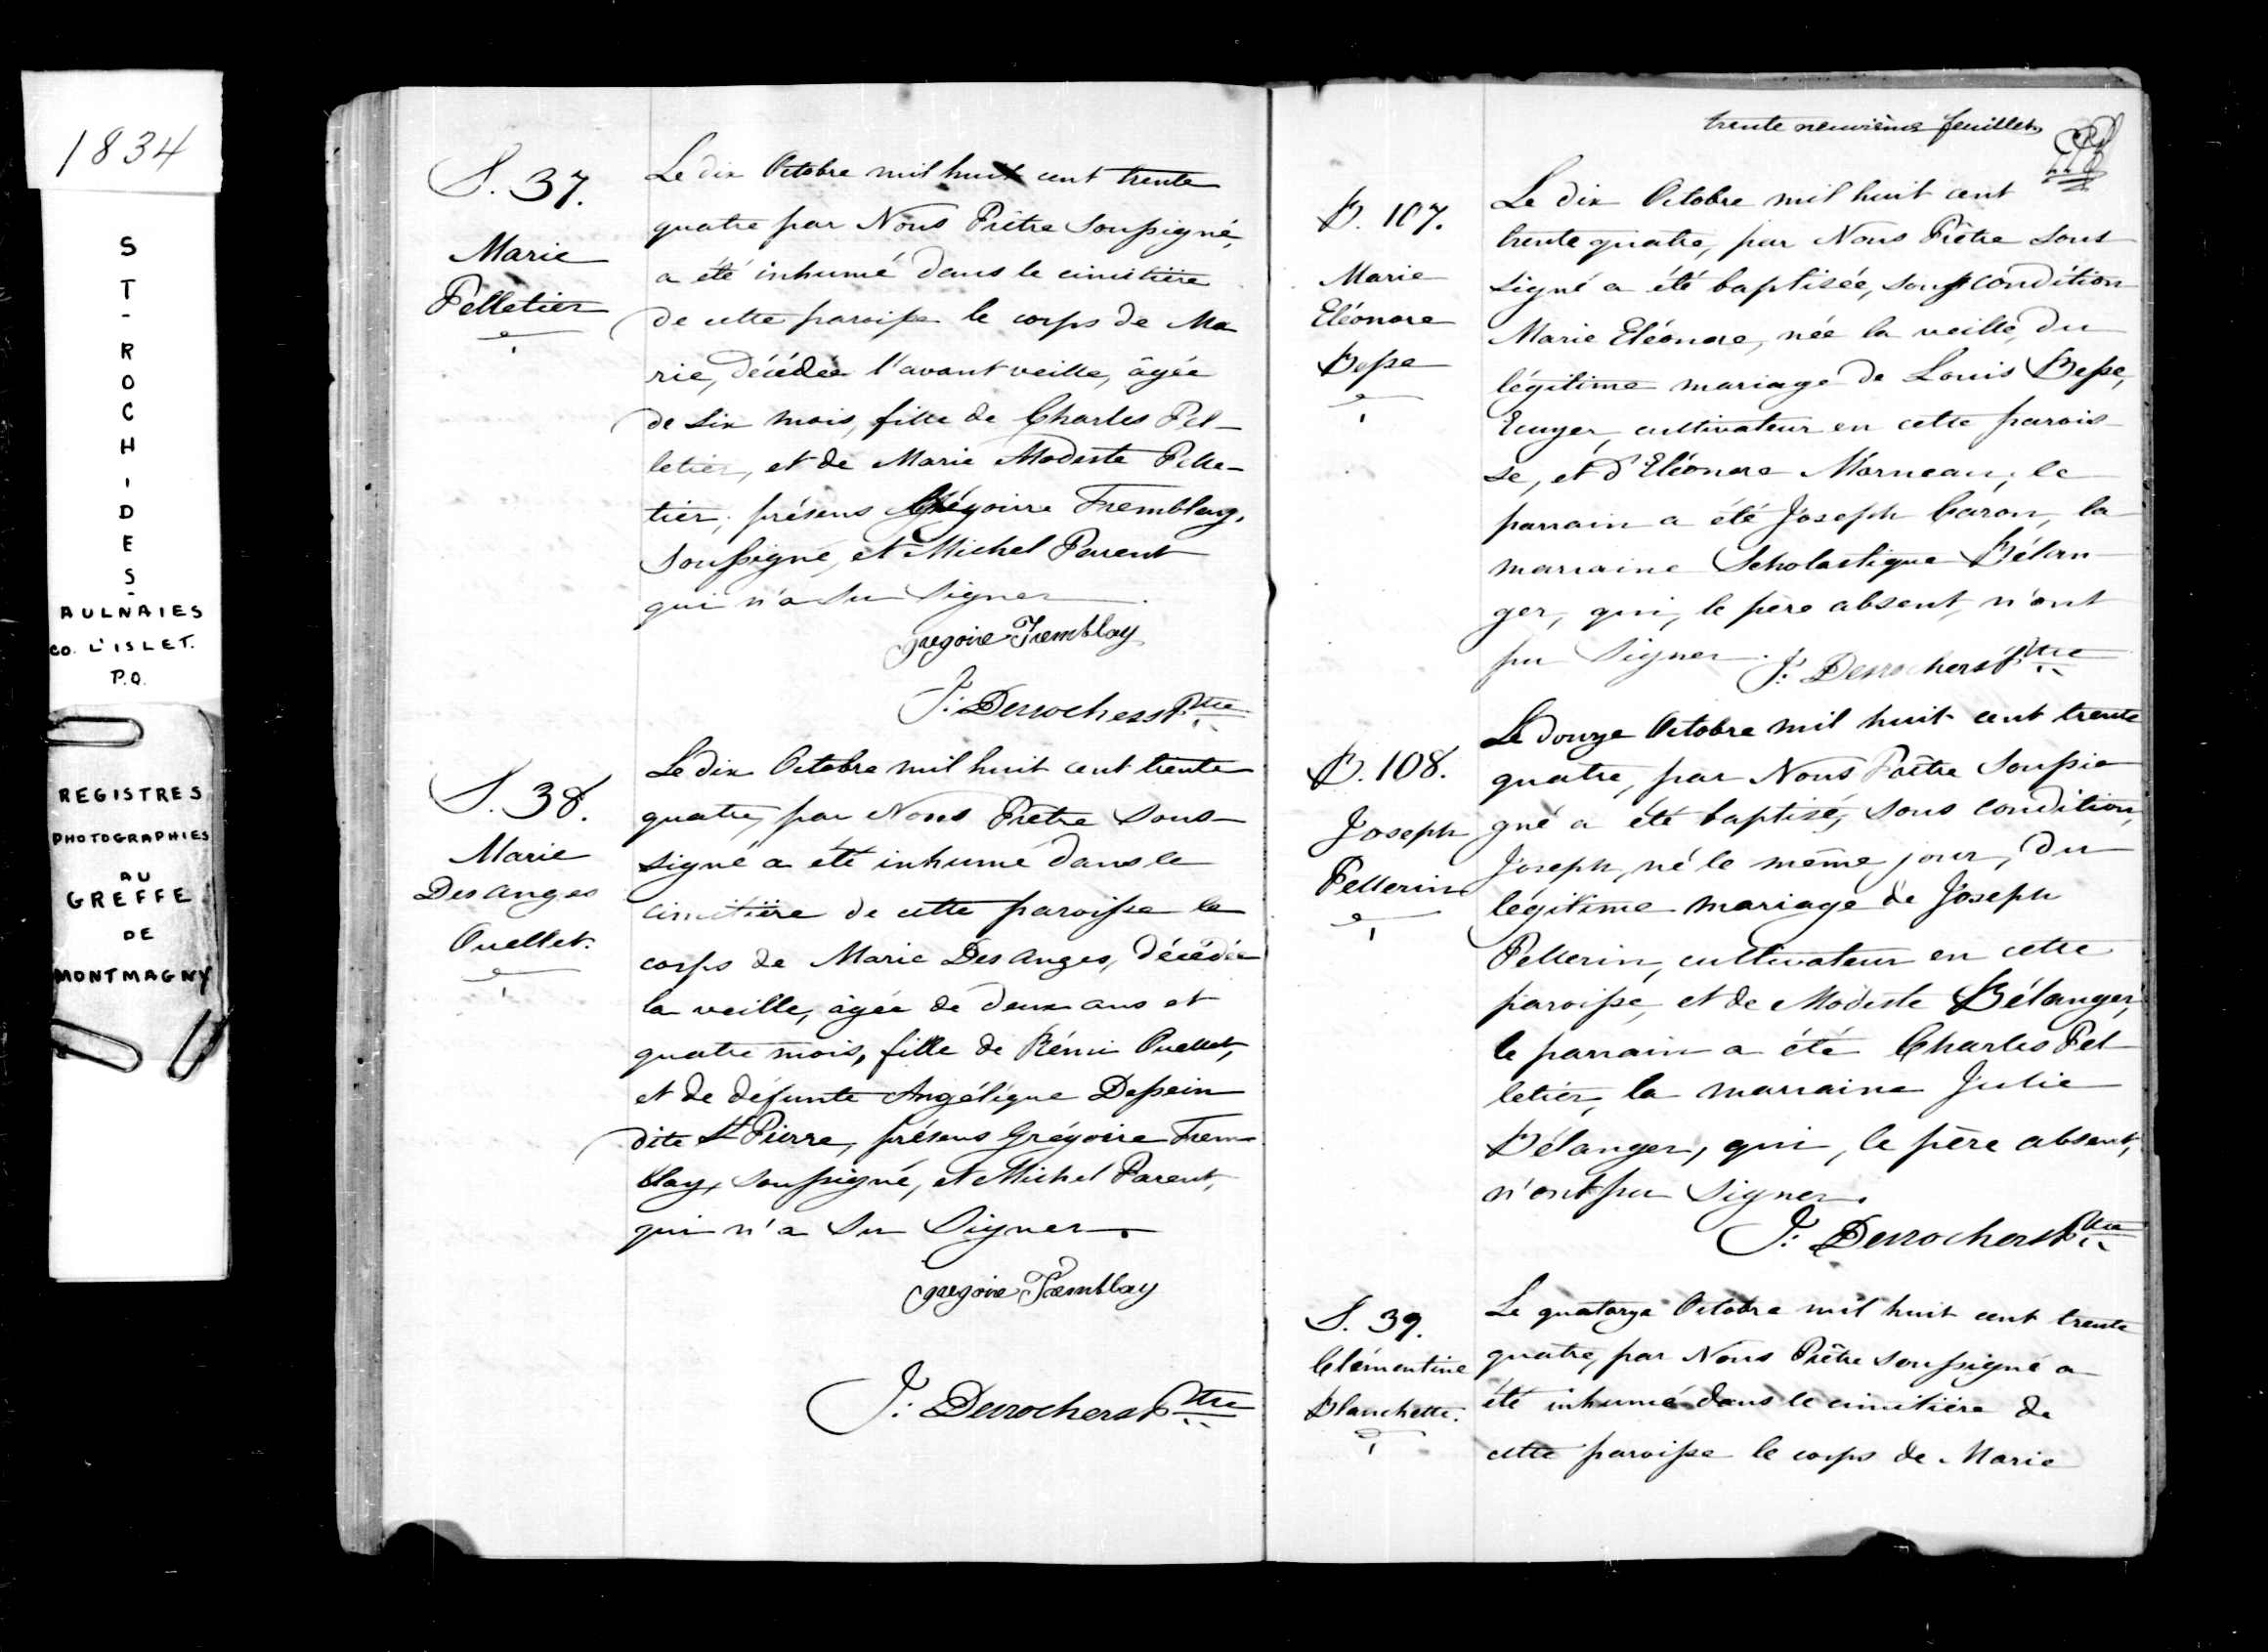 1834
S
T
-
R
O
C
H
-
D
E
S
-
AULNAIES
CO. L'ISLET.
P.Q.
REGISTRES
PHOTOGRAPHIES
AU
GREFFE
DE
MONTMAGNY
S. 37.
Marie
Pelletier
Le dix Octobre mil huit cent trente
quatre par Nous Prêtre soussigné,
a été inhumé dans le cimetière
de cette paroisse le corps de Ma
rie, décédée l'avant veille, âgée
de six mois, fille de Charles Pel-
letier, et de Marie Modeste Pelle-
tier; présens Grégoire Tremblay,
soussigné, et Michel Parent
qui n'a su signer.
Gregoire Tremblay
J: Desrochers Ptre
S. 38.
Marie
Des anges
Ouellet.
Le dix Octobre mil huit cent trente
quatre, par Nous Prêtre sous-
signé a été inhumé dans le
cimetière de cette paroisse le
corps de Marie Des anges, décédée
la veille, âgée de deux ans et
quatre mois, fille de Rémi Ouellet,
et de défunte Angélique Dessein
dite St Pierre, présens Grégoire Trem-
blay, soussigné, et Michel Parent,
qui n'a su signer.
Gregoire Tremblay
J: Desrochers Ptre
trente neuvième feuillet
B. 107.
Marie
Eléonore
Besse
Le dix Octobre mil huit cent
trente quatre, par Nous Prêtre sous
signé a été baptisée, sous condition
Marie Eléonore, née la veille, du
légitime mariage de Louis Besse,
Ecuyer, cultivateur en cette parois-
se, et d'Eléonore Morneau; le
parrain a été Joseph Caron, la
marraine Scholastique Bélan-
ger, qui, le père absent, n'ont
pu signer. J: Desrochers Ptre
B. 108.
Joseph
Pellerin
Le douze Octobre mil huit cent trente
quatre, par Nous Prêtre soussi-
gné a été baptisé, sous condition,
Joseph, né le même jour, du
légitime mariage de Joseph
Pellerin, cultivateur en cette
paroisse, et de Modeste Bélanger,
le parrain a été Charles Pel-
letier, la marraine Julie
Bélanger, qui, le père absent,
n'ont pu signer.
J: Desrochers Ptre
S. 39.
Clémentine
Blanchette.
Le quatorze Octobre mil huit cent trente
quatre, par Nous Prêtre soussigné a
été inhumé dans le cimetière de
cette paroisse le corps de Marie